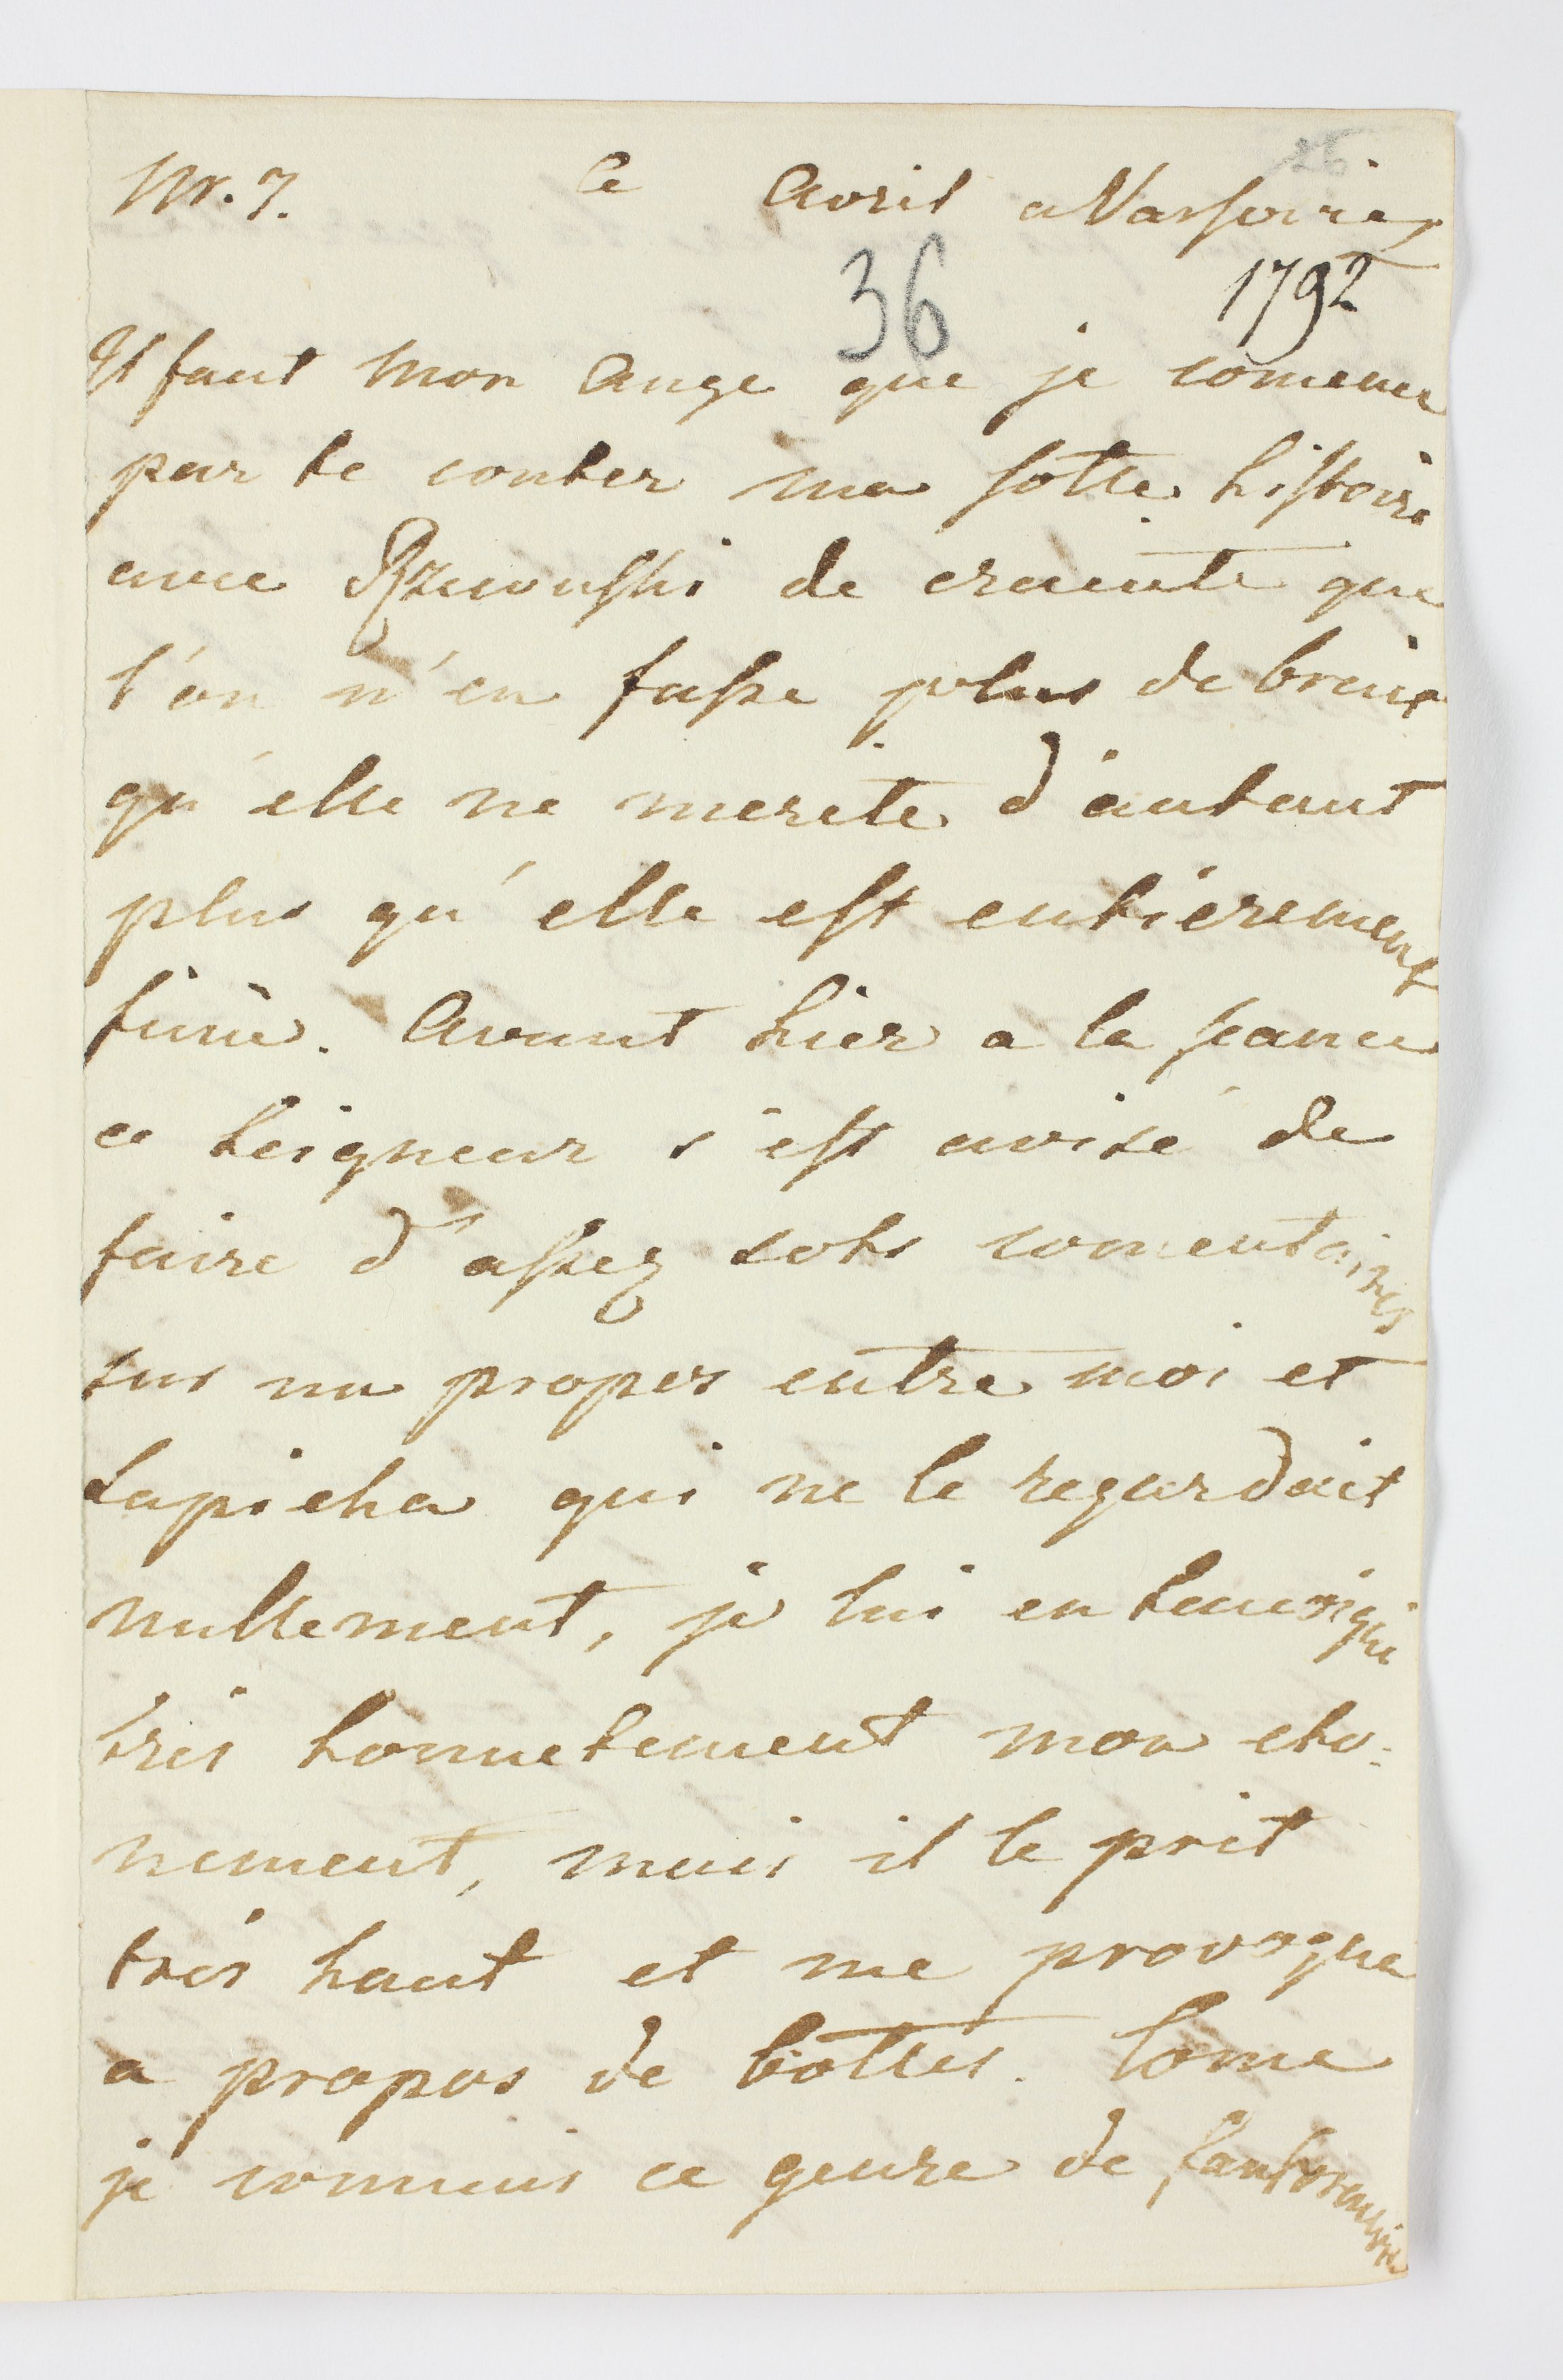 Nr. 7. ce Avril a Varsovie
36 1792
Il faut mon ange que je comence
par te conter ma sotte histoire
avec Rzewuski de crainte que
l'on n'en fasse plus de bruit
qu'elle ne merete d'autant
plus qu'elle est entièrement
finie. Avant hier a la seance
ce seigneur s'est avisé de
faire d'assez sots comentaires
sur un propos entre moi et
Sapieha qui ne le regardait
nullement, je lui en temoigne
très honnetement mon eto-
nement, mais il le prit
très haut et me provoque
a propos de bottes. Come
je connais ce genre de fanfaronade